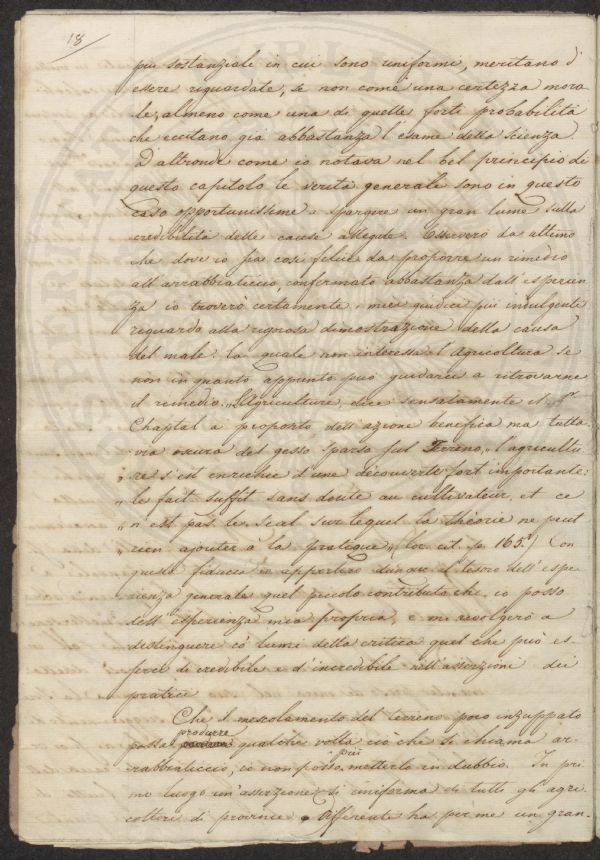 18
piu sostanziale in cui sono uniformi, meritano d'
essere riguardate, se non come una certezza mora
le, almeno come una di quelle forti probabilità
che eccitano già abbastanza l'esame della scienza.
D'altronde come io notava nel bel principio di
questo capitolo le verità generale sono in questo
caso opportunissime a spargere un gran lume sulla
credibilità delle cause allegate. Osserverò da ultimo
che dove io sia così felice da proporre un rimedio
all'arrabbiaticcio, confermato abbastanza dall'esperien
za io troverò certamente i miei giudici più indulgenti
riguardo alla rigorosa dimostrazione della causa
del male: la quale non interessa l'Agricoltura se
non in quanto appunto può guidarci a ritrovarne
il rimedio. L'Agriculture, dice sensatamente il Sr
Chaptal a proposito dell'azione benefica ma tutta-
via oscura del gesso sparso sul Terreno, "l'agricultu
" re s'est enrichie d'une découverte fort importante:
" le fait suffit sans doute au cultivateur, et ce
" n'est pas le seul sur lequel la théorie ne peut
" rien ajouter à la pratique" (loc. cit. p. 165.) Con
questa fiducia io apporterò dunque al tesoro dell'espe
rienza generale quel piccolo contributo che io posso
dell'esperienza mia propria, e mi rivolgerò a
distinguere co' lumi della critica quel che può es
serci di credibile e d'incredibile nell'asserzioni dei
pratici
Che il mescolamento del terreno poco inzuppato
produrre
possa qualche volta ciò che si chiama ar-
più
rabbiaticcio, io non posso metterlo in dubbio. In pri
mo luogo un'asserzione sì uniforme di tutti gli agri
coltori di provincie differente ha per me un gran-